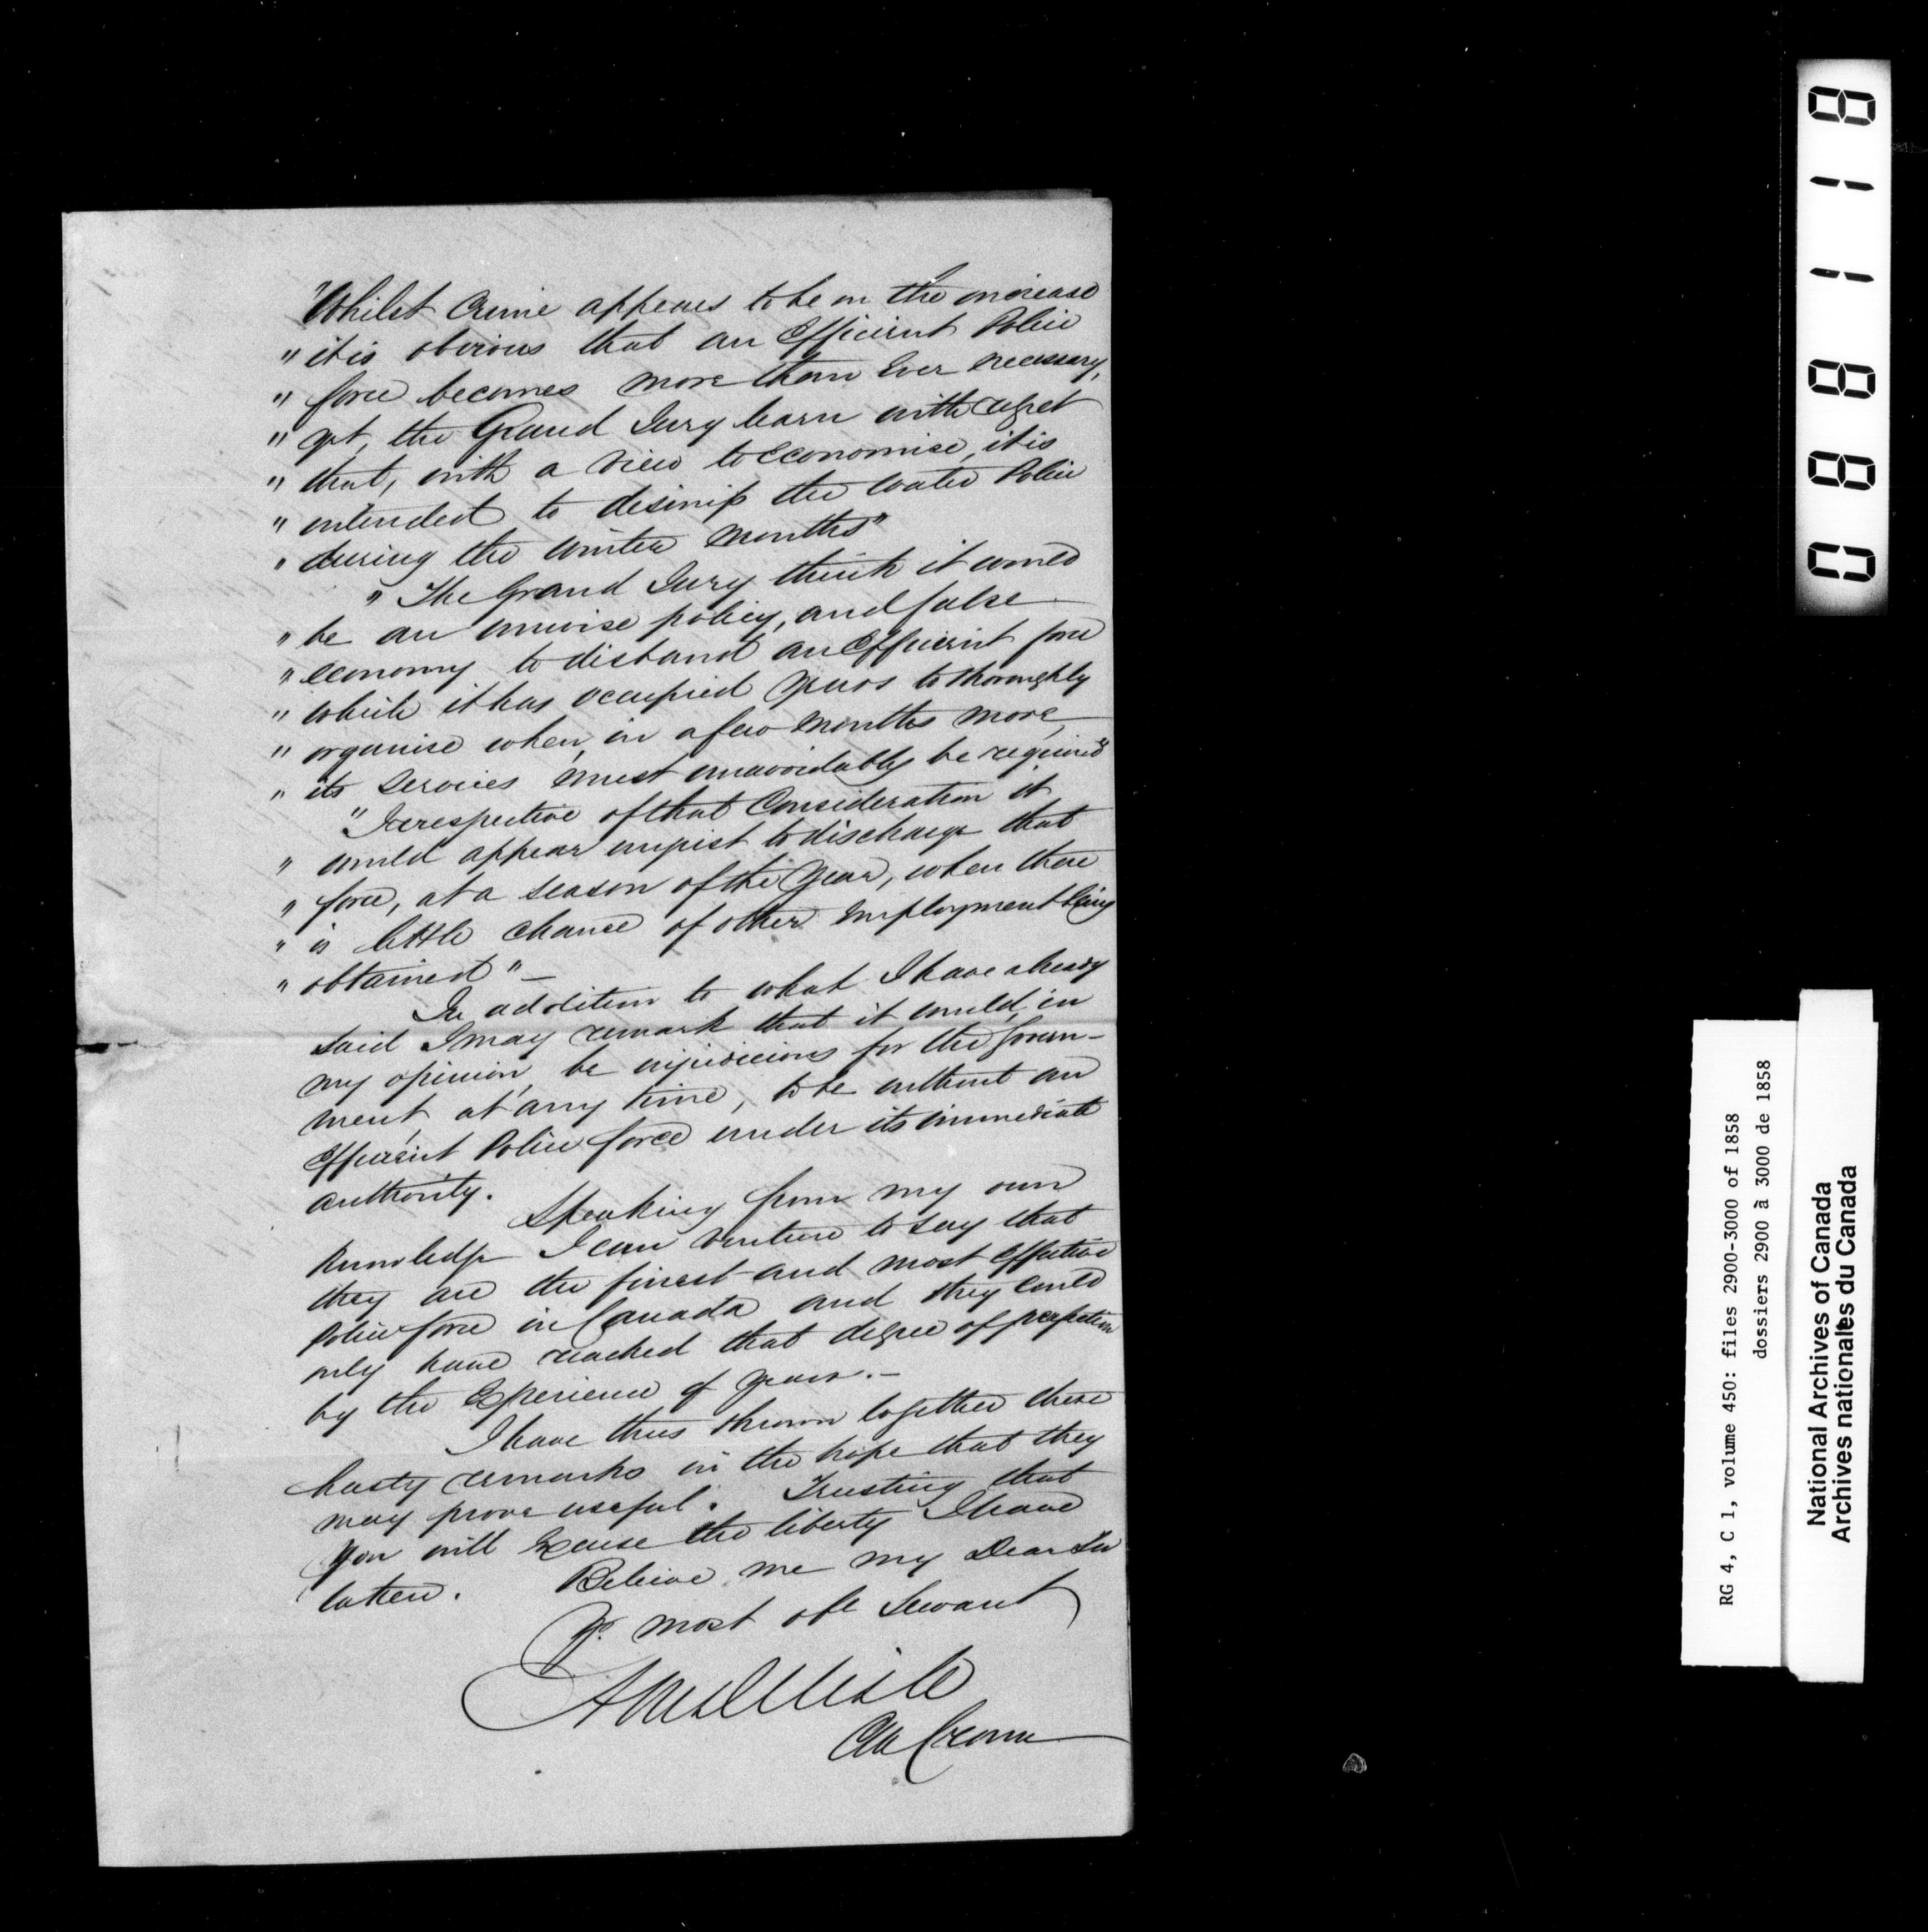 "Whilst Crime appears to be on the increase
" it is obvious that an Efficient Police
" force becomes more than Ever necessary,
" yet, the Grand Jury learn with regret
" that, with a view to economise, it is
" intended to dismiss the Water Police
" during the winter months"
" The Grand Jury think it would
" be an unwise policy, and false
" economy to disband an Efficient force
" which it has occupied years to thoroughly
" organise when, in a few months more,
" its services must unavoidably be required"
" Irrespective of that Consideration it
" would appear unjust to discharge that
" force, at a season of the Year, when there
" is little chance of other Employment being
" obtained" —
In addition to what I have already
said I may remark that it would, in
my opinion, be injudicious for the Govern-
ment, at any time, to be without an
Efficient Police force under its immediate
authority.
Speaking from my own
knowledge I can venture to say that
they are the finest and most Effective
Police force in Canada and they could
only have reached that degree of perfection
by the Experience of years. —
I have thus thrown together these
hasty remarks in the hope that they
may prove useful. Trusting that
you will Excuse the liberty I have
taken. Believe me my Dear Sir
Yr. most obt Servant
Delisle
Clk Crown
088118
RG 4, C 1, volume 450: files 2900-3000 of 1858
dossiers 2900 à 3000 de 1858
National Archives of Canada
Archives nationales du Canada